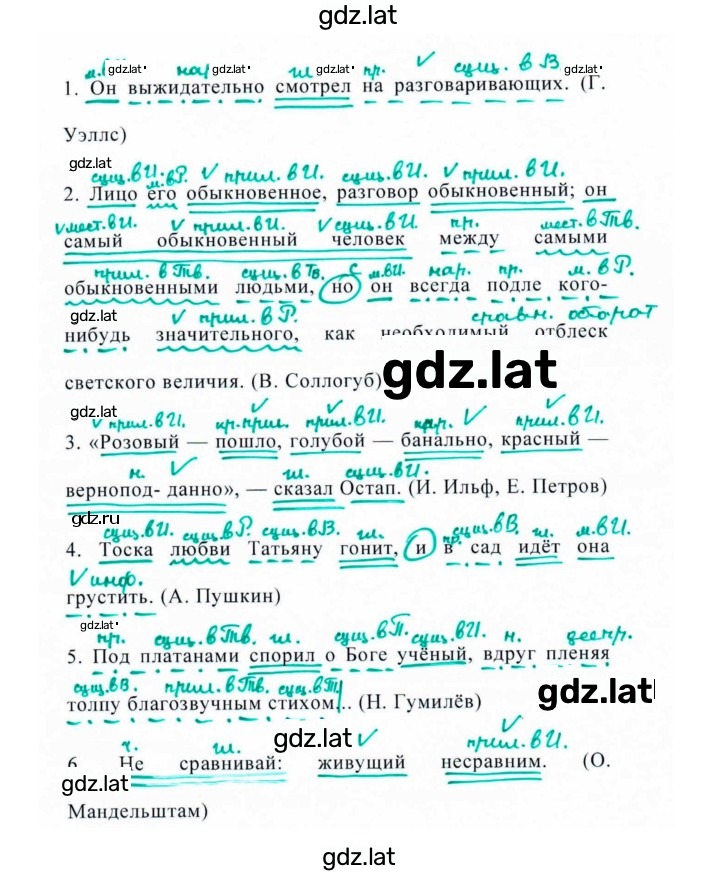 gdz.lat
gdz.lat gdz.lat gdz.lat gdz.lat
гл. пр. V сущ. в В
1. Он выжидательно смотрел на разговаривающих. (Г.
Уэллс)
gdz.lat
сущ. в И. м. в Р. V прил. в И. сущ. в И. V прил. в И.
2. Лицо его обыкновенное, разговор обыкновенный; он
V мест. в И. V прил. в И. V сущ. в И. пр. мест. в Тв.
самый обыкновенный человек между самыми
прил. в Тв. сущ. в Тв. с м. в И. нар. пр. м. в Р.
обыкновенными людьми, но он всегда подле кого-
gdz.lat V прил. в Р. сравн. оборот
нибудь значительного, как необходимый отблеск
светского величия. (В. Соллогуб) gdz.lat
gdz.lat
V прил. в И. кр. прил. V прил. в И. V нар. V прил. в И. V
3. «Розовый — пошло, голубой — банально, красный —
н. V гл. сущ. в И.
вернопод- данно», — сказал Остап. (И. Ильф, Е. Петров)
gdz.ru
сущ. в И. сущ. в Р. сущ. в В. гл. пр. сущ. в В. гл. м. в И.
4. Тоска любви Татьяну гонит, и в сад идёт она
V инф.
грустить. (А. Пушкин)
gdz.lat
пр. сущ. в Тв. гл. сущ. в П. сущ. в И. н. деепр.
5. Под платанами спорил о Боге учёный, вдруг пленяя
сущ. в В. прил. в Тв. сущ. в Тв gdz.lat
толпу благозвучным стихом... (Н. Гумилёв)
ч. гл. gdz.lat V прил. в И. V
6 Не сравнивай: живущий несравним. (О.
gdz.lat
Мандельштам)
gdz.lat